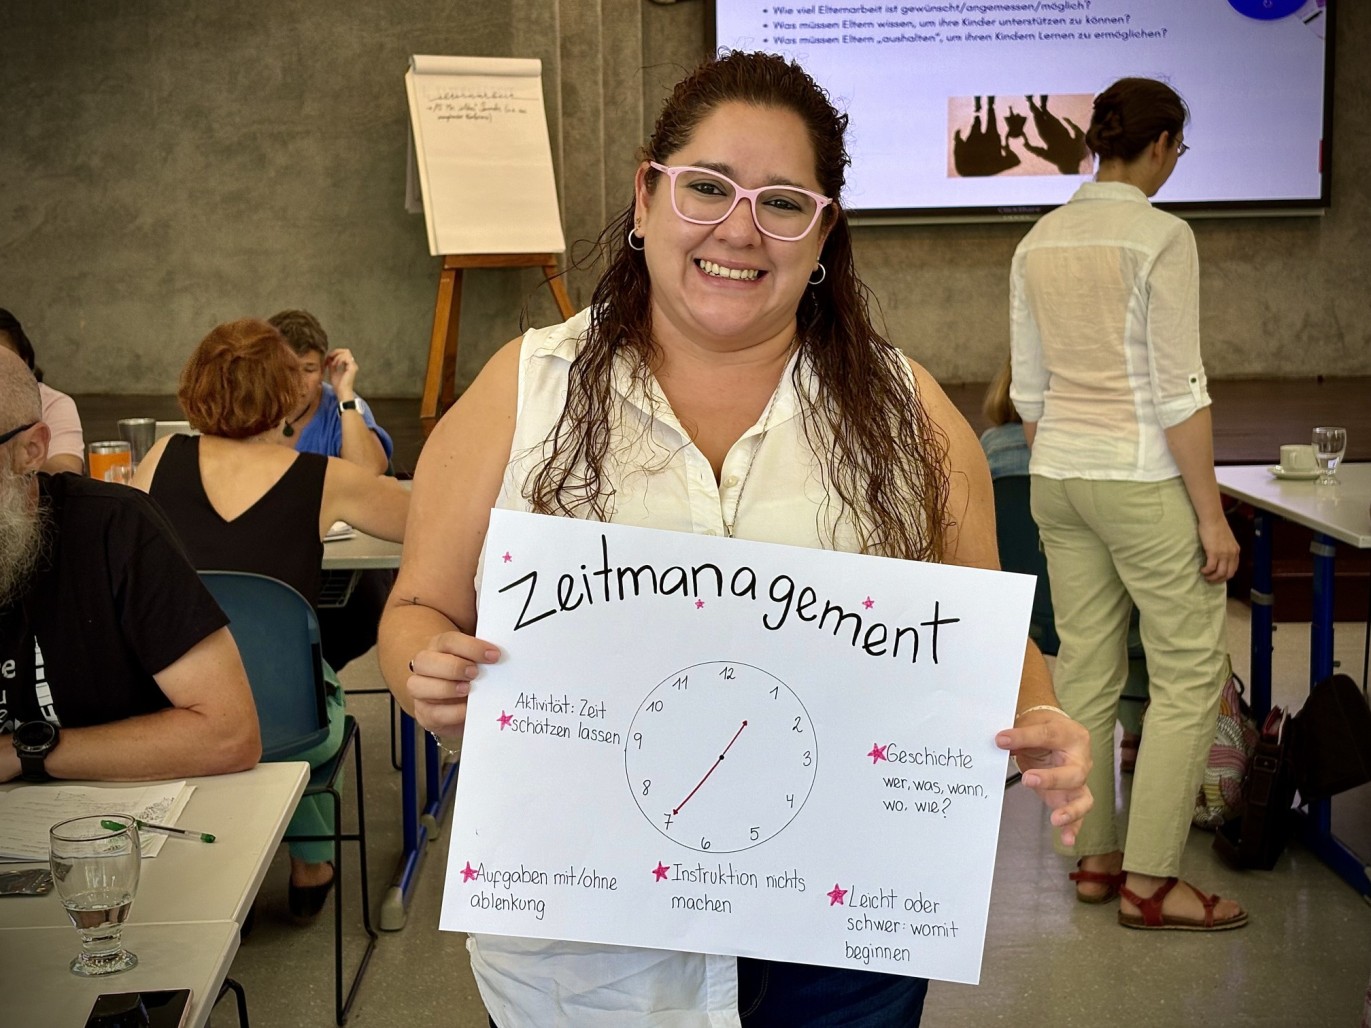 • Wie viel Elternarbeit ist gewünscht/angemessen/möglich?
• Was müssen Eltern wissen, um ihre Kinder unterstützen zu können?
• Was müssen Eltern „aushalten“, um ihren Kindern Lernen zu ermöglichen?
Zeitmanagement
12
11
1
10
2
9
3
8
4
7
5
6
Aktivität: Zeit
schätzen lassen
Geschichte
wer, was, wann,
wo, wie?
Aufgaben mit/ohne
ablenkung
Instruktion nichts
machen
Leicht oder
schwer: womit
beginnen